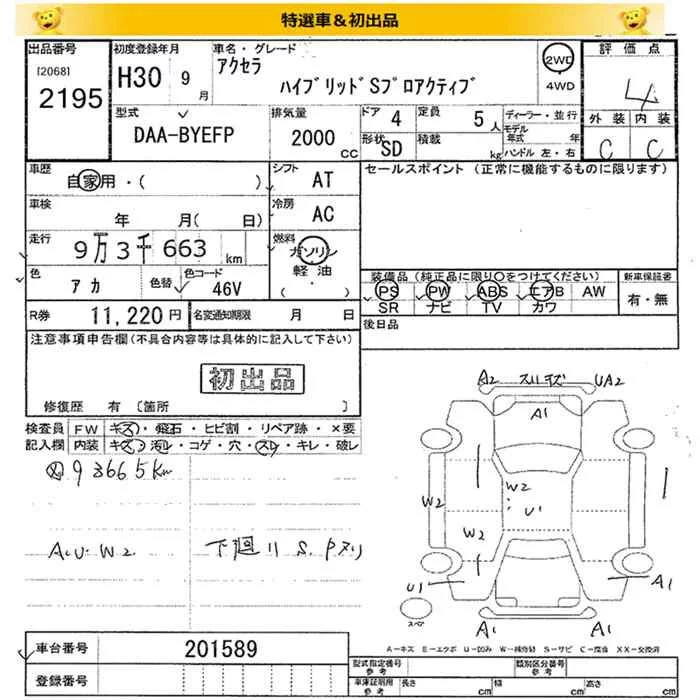 特選車&初出品
出品番号
[2068]
2195
初度登録年月
H30 9 月
車名・グレード
アクセラ
ハイブリッドSプロアクティブ
2WD
4WD
評価点
4
外装 内装
C C
型式
DAA-BYEFP
排気量
2000 CC
ドア 4
形状 SD
定員 5 人
積載 kg
ディーラー・並行
モデル年式 年
ハンドル 左・右
車歴
自家用・( )
シフト
AT
セールスポイント (正常に機能するものに限ります)
車検
年 月( 日)
冷房
AC
走行
9万3千663 km
燃料
ガソリン
軽油
( ・ )
色
アカ
色替
色コード
46V
装備品 (純正品に限り○をつけてください)
PS PW ABS エアB AW
SR ナビ TV カワ
新車保証書
有・無
R券 11,220円
名変通知期限 月 日
後日品
注意事項申告欄(不具合内容等は具体的に記入して下さい)
初出品
修復歴 有 〔箇所 〕
検査員
記入欄
FW キズ・飛石・ヒビ割・リペア跡・×要
内装 キズ・汚レ・コゲ・穴・スレ・キレ・破レ
93665Km
A.U.W2
下廻リ S.Pヌリ
A2 スリキズ UA2
A1
W2
W2
U1
W2
1
U1
A1
スペア
A1 A1
A-キズ E-エクボ U-凹み W-補修跡 S-サビ C-腐食 XX-交換済
車台番号 201589
登録番号
型式指定番号
参考
類別区分番号
参考
車庫証明用
参考
長さ cm
幅 cm
高さ cm